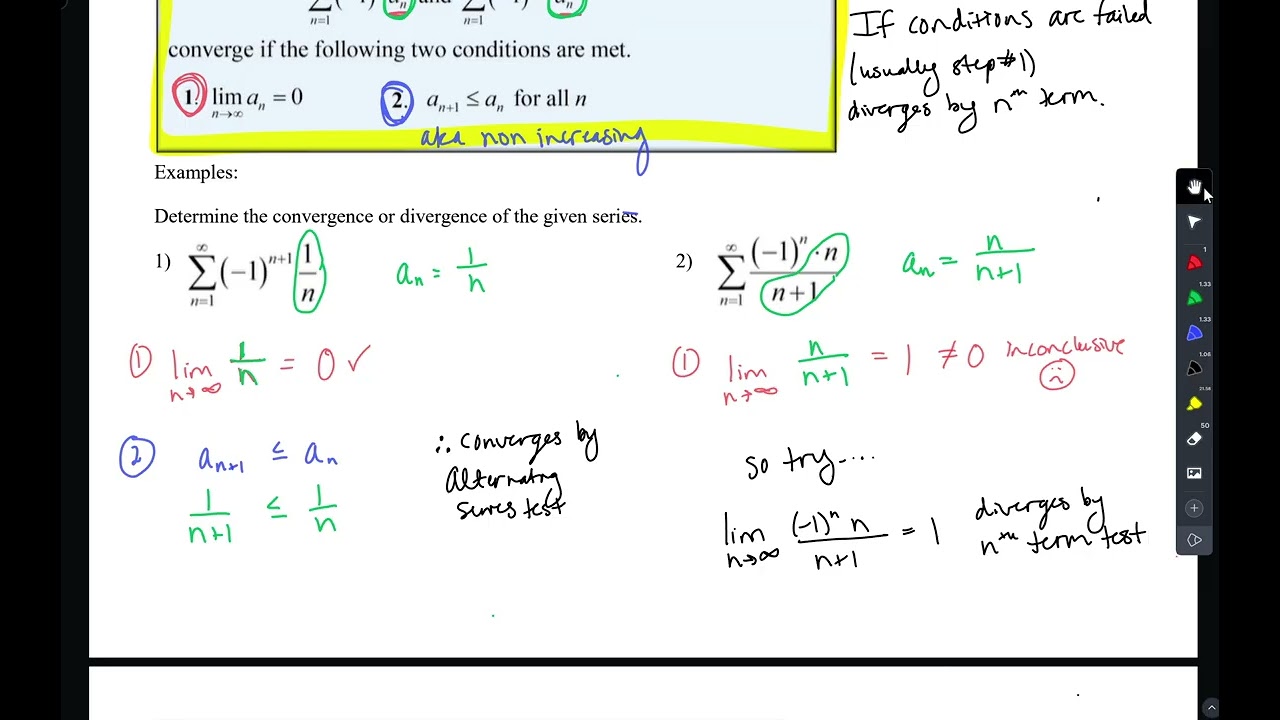 ∑(-1) aₙ and ∑(-1) aₙ
n=1 n=1
converge if the following two conditions are met.
1. lim aₙ = 0
n→∞
2. aₙ₊₁ ≤ aₙ for all n
aka non increasing
If conditions are failed
(usually step #1)
diverges by nᵗʰ term.
Examples:
Determine the convergence or divergence of the given series.
1) ∞∑n=1 (-1)ⁿ⁺¹ 1/n
aₙ = 1/n
① lim n→∞ 1/n = 0 ✓
② aₙ₊₁ ≤ aₙ
1/(n+1) ≤ 1/n
∴ converges by
Alternatng
Series test
2) ∞∑n=1 (-1)ⁿ · n / (n+1)
aₙ = n/(n+1)
① lim n→∞ n/(n+1) = 1 ≠ 0 inconclusive
so try....
lim n→∞ (-1)ⁿ n / (n+1) = 1
diverges by
nᵗʰ term test
1
1.33
1.33
1.06
21.58
50